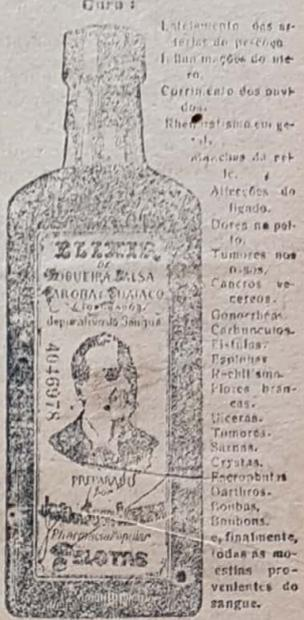 Cura:
Latejamento das ar-
terias do pescoço.
Inflammações do ute-
ro.
Corrimento dos ouvi-
dos.
Rheumatismo em ge-
ral.
Manchas da pel-
le.
Affecções do
figado.
Dores no pei-
to.
Tumores nos
ossos.
Cancros ve-
nereos.
Gonorrheas.
Carbunculos.
Fistulas.
Espinhas
Rachitismo.
Flores bran-
cas.
Ulceras.
Tumores.
Sarnas.
Crystas.
Escrophulas
Darthros.
Boubas.
Boubons.
e, finalmente,
todas as mo-
lestias pro-
venientes do
sangue.
ELIXIR
DE
NOGUEIRA, SALSA
CAROBA E GUAIACO
depurativo do Sangue
4046978
PREPARADO
por
Pharmacia Popular
PELOTAS